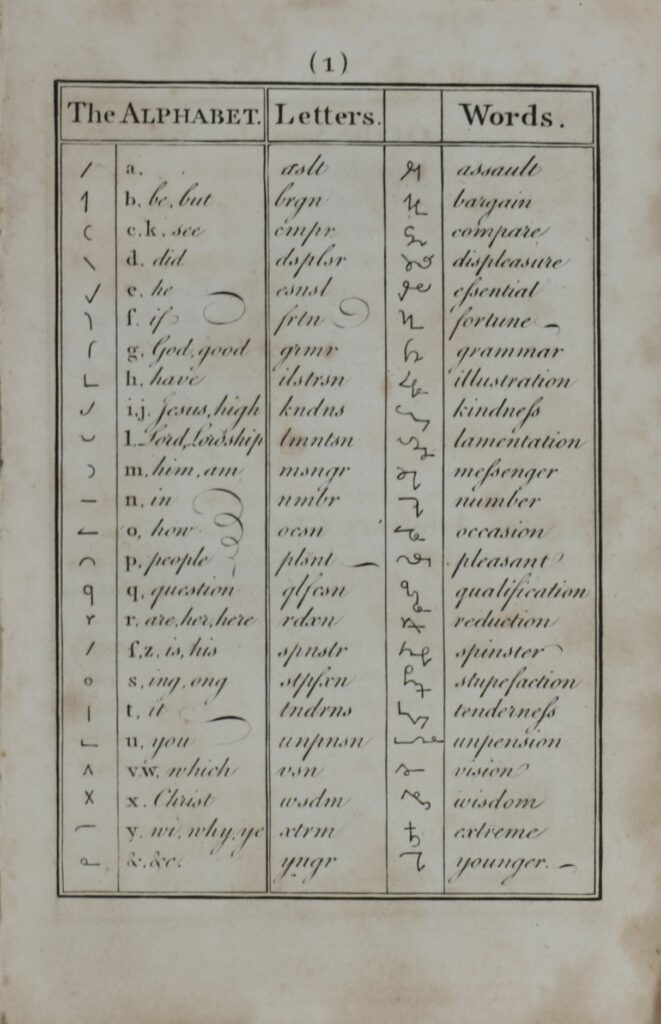 (1)
The ALPHABET. Letters. Words.
a. aslt assault
b, be, but brgn bargain
c, k, see cmpr compare
d. did dsplsr displeasure
e. he esnsl eſsential
f. if frtn fortune
g, God, good grmr grammar
h, have ilstrsn illustration
i.j. Jesus, high kndns kindneſs
l. Lord, Lordship lmntsn lamentation
m, him, am msngr meſsenger
n, in nmbr number
o, how ocsn occasion
p, people plsnt pleasant
q, question qlfcsn qualification
r, are, her, here rdxn reduction
ſ,z, is, his spnstr spinster
s, ing, ong stpfxn stupefaction
t, it tndrns tenderneſs
u, you unpnsn unpension
v.w, which vsn vision
x. Christ wsdm wisdom
y, wi, why, ye xtrm extreme
&, &c. yngr younger.